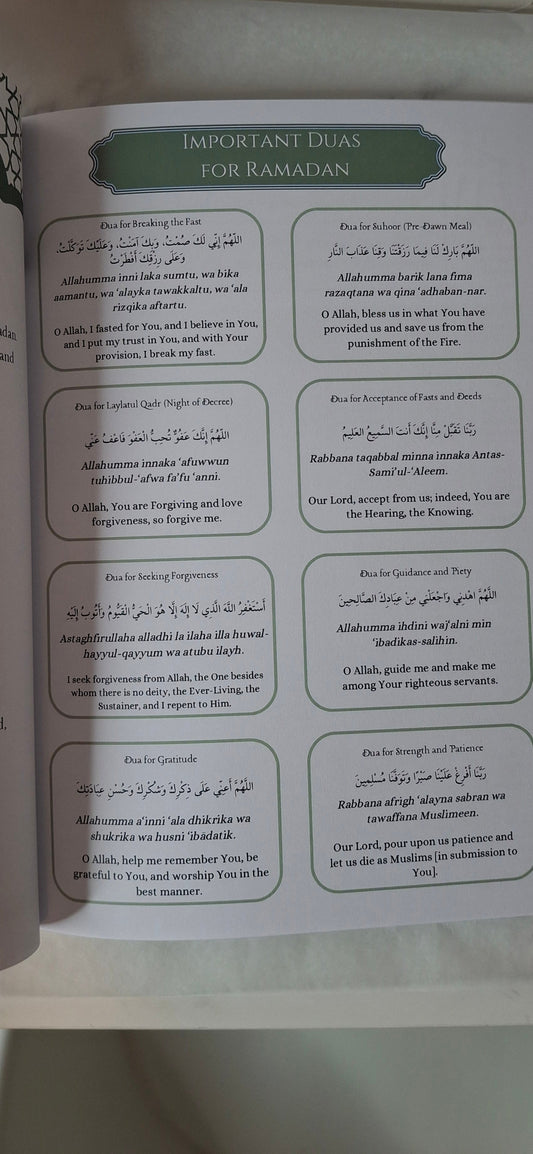 IMPORTANT DUAS
FOR RAMADAN
Dua for Breaking the Fast
اللّهُمَّ إِنِّي لَكَ صُمْتُ، وَبِكَ آمَنْتُ، وَعَلَيْكَ تَوَكَّلْتُ،
وَعَلَى رِزْقِكَ أَفْطَرْتُ
Allahumma inni laka sumtu, wa bika
aamantu, wa ‘alayka tawakkaltu, wa ‘ala
rizqika aftartu.
O Allah, I fasted for You, and I believe in You,
and I put my trust in You, and with Your
provision, I break my fast.
Dua for Suhoor (Pre-Dawn Meal)
اللّهُمَّ بَارِكْ لَنَا فِيمَا رَزَقْتَنَا وَقِنَا عَذَابَ النَّارِ
Allahumma barik lana fima
razaqtana wa qina ‘adhaban-nar.
O Allah, bless us in what You have
provided us and save us from the
punishment of the Fire.
Dua for Laylatul Qadr (Night of Decree)
اللّهُمَّ إِنَّكَ عَفُوٌّ تُحِبُّ الْعَفْوَ فَاعْفُ عَنِّي
Allahumma innaka ‘afuwwun
tuhibbul-‘afwa fa’fu ‘anni.
O Allah, You are Forgiving and love
forgiveness, so forgive me.
Dua for Acceptance of Fasts and Deeds
رَبَّنَا تَقَبَّلْ مِنَّا إِنَّكَ أَنتَ السَّمِيعُ العَلِيمُ
Rabbana taqabbal minna innaka Antas-
Sami’ul-‘Aleem.
Our Lord, accept from us; indeed, You are
the Hearing, the Knowing.
Dua for Seeking Forgiveness
أَسْتَغْفِرُ اللَّهَ الَّذِي لَا إِلَهَ إِلَّا هُوَ الْحَيُّ الْقَيُّومُ وَأَتُوبُ إِلَيْهِ
Astaghfirullaha alladhi la ilaha illa huwal-
hayyul-qayyum wa atubu ilayh.
I seek forgiveness from Allah, the One besides
whom there is no deity, the Ever-Living, the
Sustainer, and I repent to Him.
Dua for Guidance and Piety
اللَّهُمَّ اهْدِنِي وَاجْعَلْنِي مِنْ عِبَادِكَ الصَّالِحِينَ
Allahumma ihdini waj‘alni min
‘ibadikas-salihin.
O Allah, guide me and make me
among Your righteous servants.
Dua for Gratitude
اللَّهُمَّ أَعِنِّي عَلَى ذِكْرِكَ وَشُكْرِكَ وَحُسْنِ عِبَادَتِكَ
Allahumma a‘inni ‘ala dhikrika wa
shukrika wa husni ‘ibādatik.
O Allah, help me remember You, be
grateful to You, and worship You in the
best manner.
Dua for Strength and Patience
رَبَّنَا أَفْرِغْ عَلَيْنَا صَبْرًا وَتَوَفَّنَا مُسْلِمِينَ
Rabbana afrigh ‘alayna sabran wa
tawaffana Muslimeen.
Our Lord, pour upon us patience and
let us die as Muslims [in submission to
You].
and